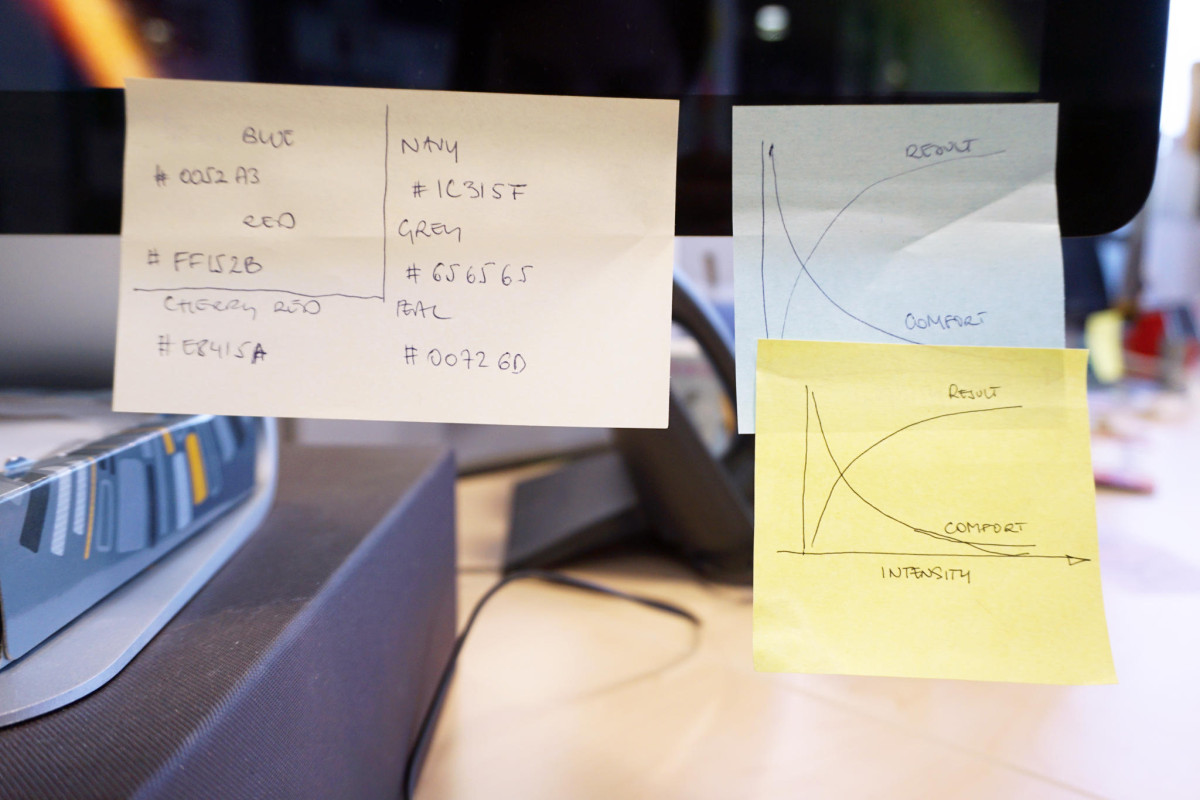 BLUE
# 0052A3
RED
# FF152B
CHERRY RED
# E8415A
NAVY
# 1C315F
GREY
# 656565
TEAL
# 00726D
RESULT
COMFORT
RESULT
COMFORT
INTENSITY